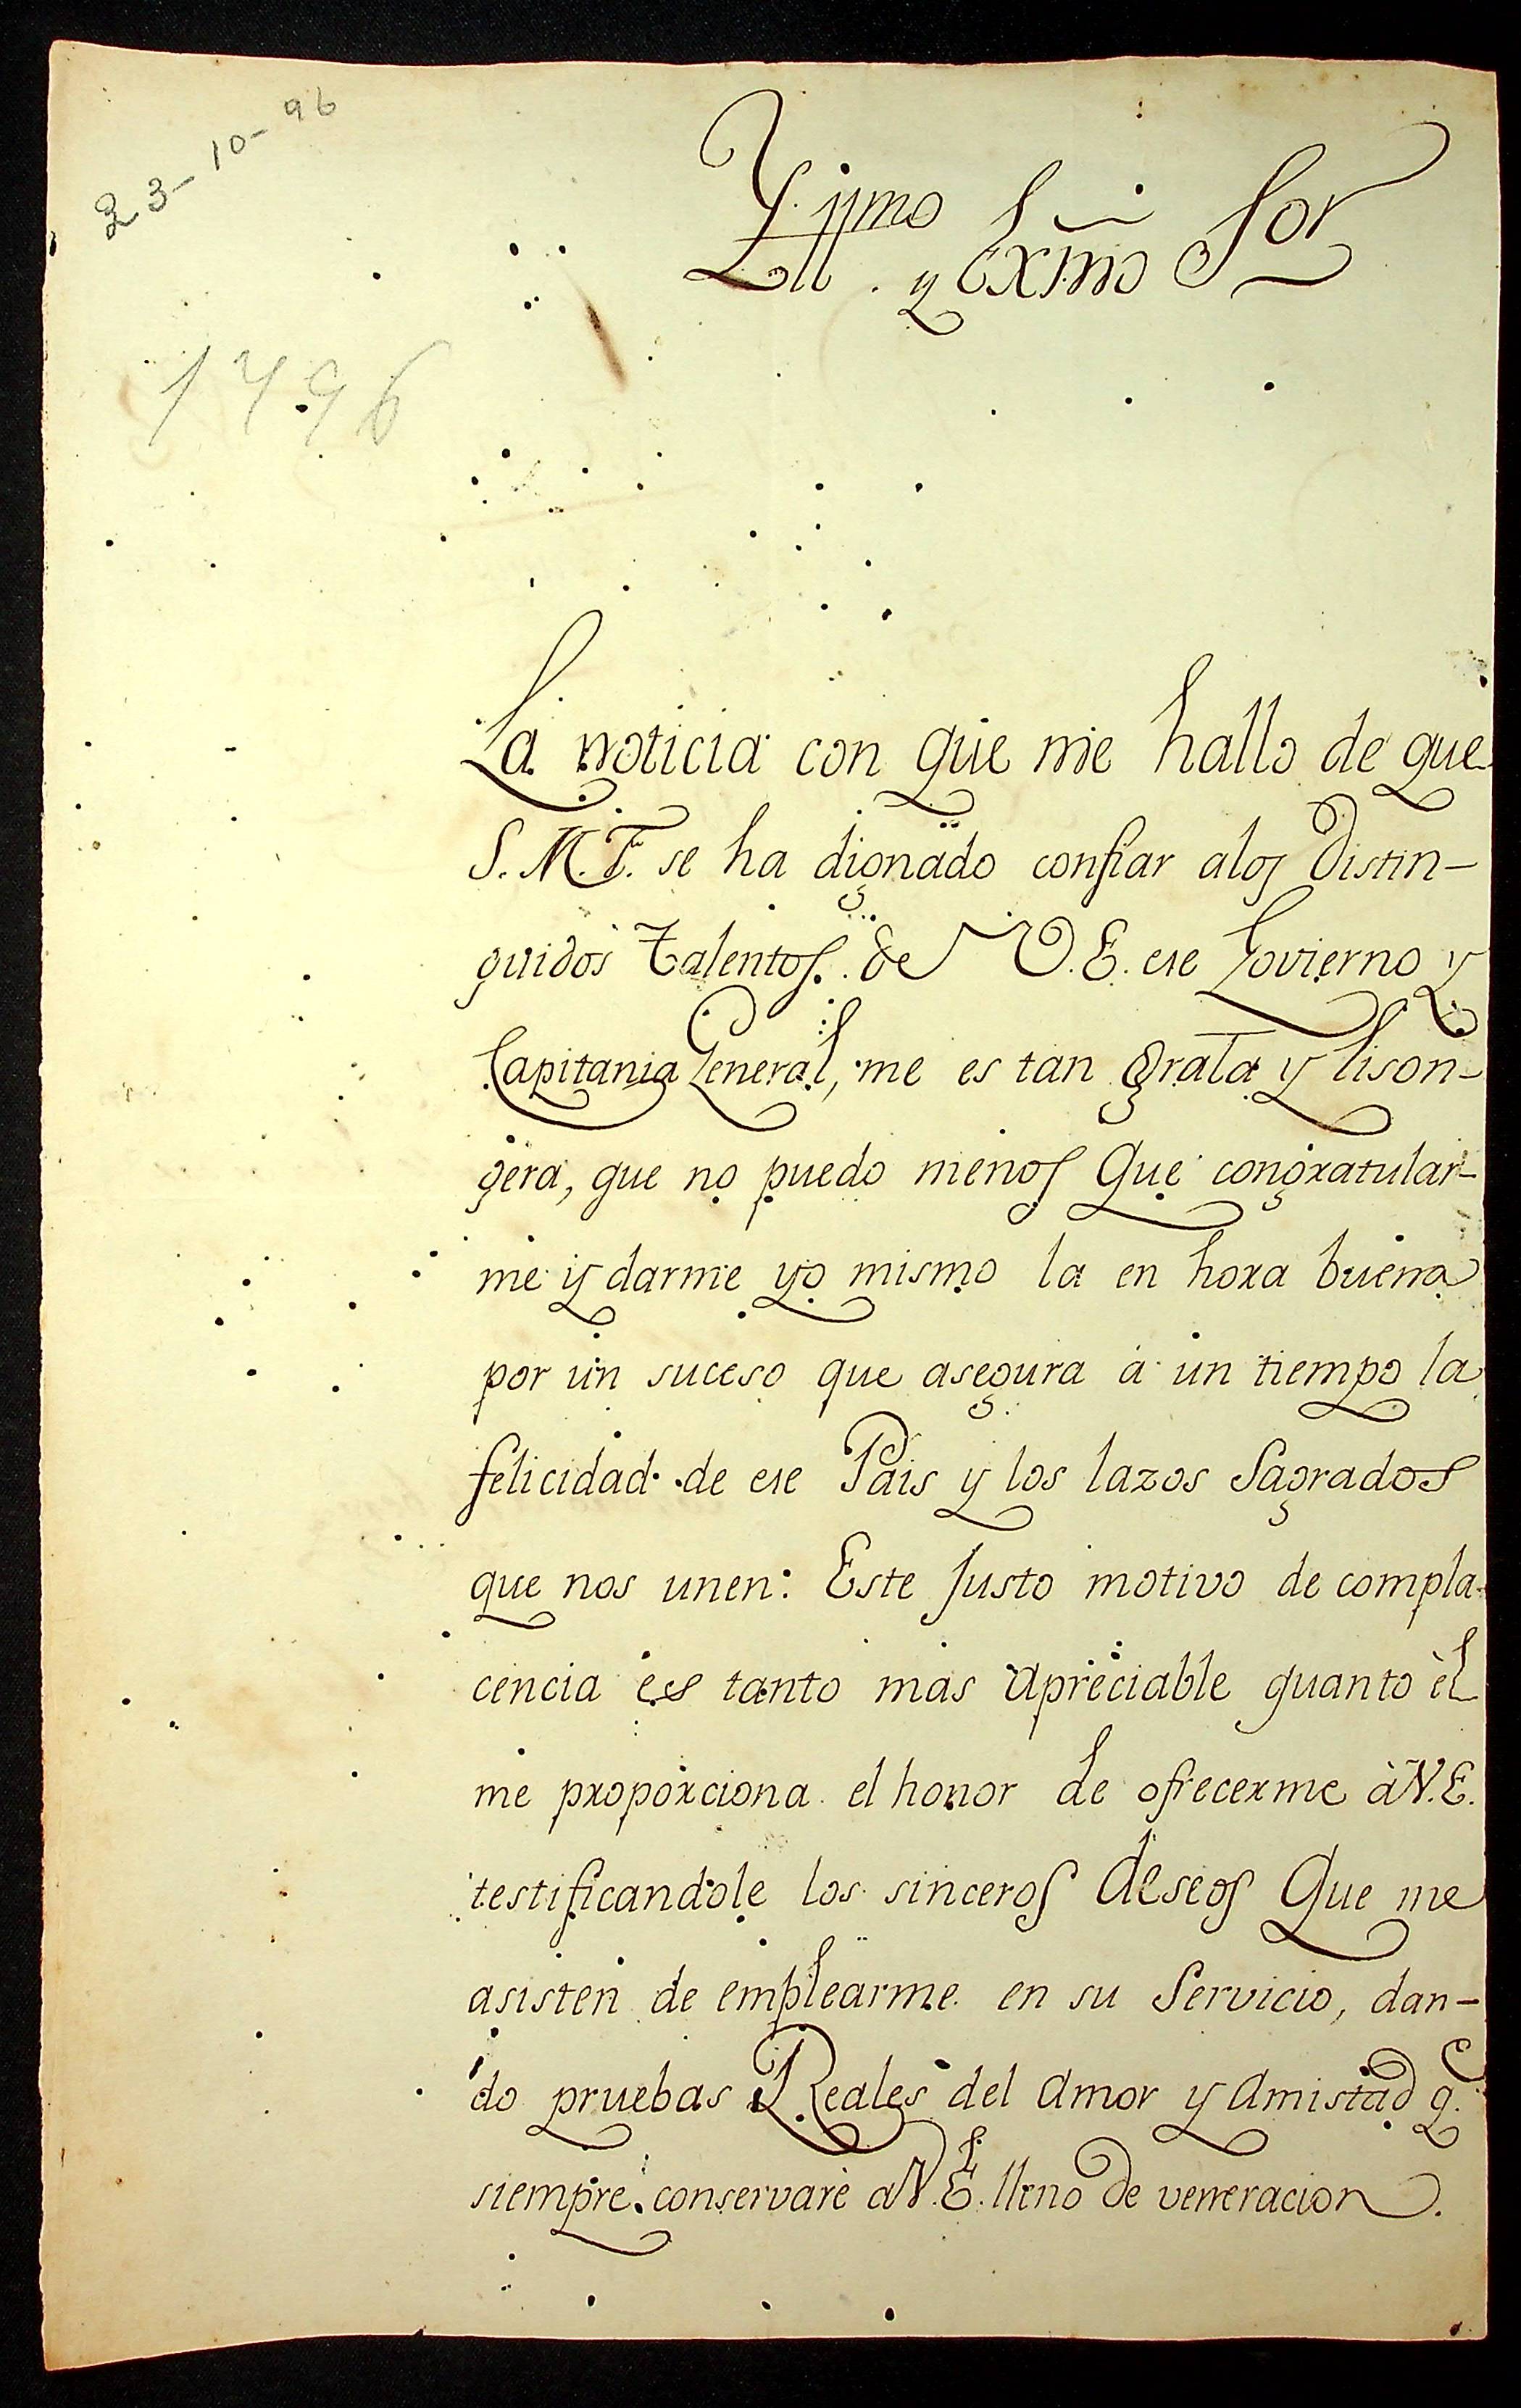 23-10-96
Yllmo y Exmo Sor
1796
La noticia con que me hallo de que
S. M. F. se ha dignado confiar alos distin-
guidos talentos de V. E. ese Govierno y
Capitania General, me es tan grata y lison-
gera, que no puedo menos que congratular-
me y darme yo mismo la en hora buena
por un suceso que asegura á un tiempo la
felicidad de ese Pais y los lazos Sagrados
que nos unen: Este justo motivo de compla-
cencia es tanto mas apreciable quanto èl
me proporciona el honor de ofrecerme à V. E.
testificandole los sinceros deseos que me
asisten de emplearme en su Servicio, dan-
do pruebas Reales del amor y amistad q.e
siempre conservarè a V. E. lleno de veneracion.